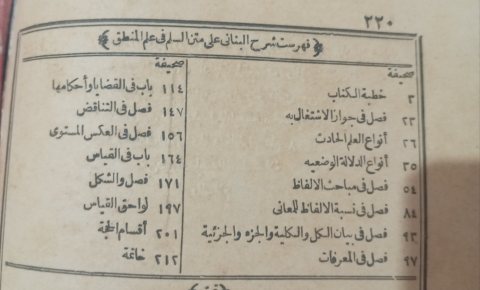 ٢٢٠
﴿ فهرست شرح البنانى على متن السلم فى علم المنطق ﴾
صحيفة
٣ خطبة الكتاب
٢٣ فصل فى جواز الاشتغال به
٢٦ أنواع العلم الحادث
٣٥ أنواع الدلالة الوضعيه
٥٤ فصل فى مباحث الالفاظ
٨٤ فصل فى نسبة الالفاظ للعانى
٩٣ فصل فى بيان الكل والكلية والجزء والجزئية
٩٧ فصل فى المعرفات
صحيفة
١١٤ باب فى القضايا وأحكامها
١٤٧ فصل فى التناقض
١٥٦ فصل فى العكس المستوى
١٦٤ باب فى القياس
١٧١ فصل والشكل
١٩٧ لواحق القياس
٢٠١ أقسام الحجة
٢١٢ خاتمة